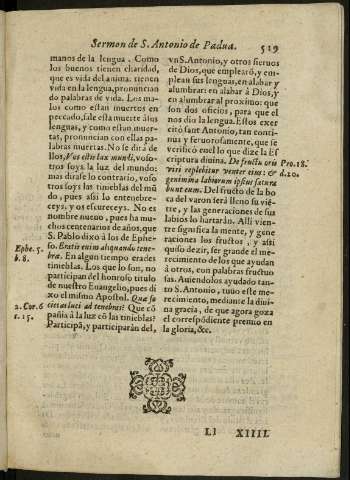 Sermon de S. Antonio de Padua.
519
manos de la lengua. Como
los buenos tienen charidad,
que es vida del anima: tienen
vida en la lengua, pronuncian
do palabras de vida. Los ma-
los como estan muertos en
peccado, sale esta muerte á lus
lenguas, y como estan muer-
tas, pronuncian con ellas pa-
labras muertas. No se dirá de
llos, Vos estis lux mundi, voso-
tros soys la luz del mundo:
mas dirase lo contrario, voso
tros soys las tinieblas del mũ
do, pues assi lo entenebre-
ceys, y os escureceys. No es
nombre nueuo, pues ha mu-
chos centenarios de años, que
S. Pablo dixo à los de Ephe-
Ephe. 5.
so. Eratis enim aliquando tene-
b. 8.
bræ. En algun tiempo erades
tinieblas. Los que lo son, no
participan del honroso titulo
de nuestro Euangelio, pues di
xo el mismo Apostol. Quæ so
2. Cor. 6
cietas luci ad tenebras? Que cõ
c. 15.
pañia à la luz cõ las tinieblas?
Participã, y participarán del,
vn S. Antonio, y otros sieruos
de Dios, que emplearõ, y em-
plean sus lenguas, en alabar y
alumbrar: en alabar à Dios, y
en alumbrar al proximo: que
son dos oficios, para que el
nos dio la lengua. Estos exer
citó sant Antonio, tan conti-
nua y feruorosamente, que se
verificó en el lo que dize la Es
criptura diuina. De fructu oris
Pro. 18.
viri replebitur venter eius: &
d. 20.
genimina labiorum ipsius satura
bunt eum. Del fructo de la bo
ca del varon será lleno su viẽ-
tre, y las generaciones de sus
labios lo hartarán. Alli vien-
tre significa la mente, y gene
raciones los fructos, y assi
quiso dezir, ser grande el me-
recimiento de los que ayudan
à otros, con palabras fructuo
sas. Auiendolos ayudado tan-
to S. Antonio, tuuo este me-
recimiento, mediante la diui-
na gracia, de que agora goza
el correspõdiente premio en
la gloria, &c.
Ll XIIII.